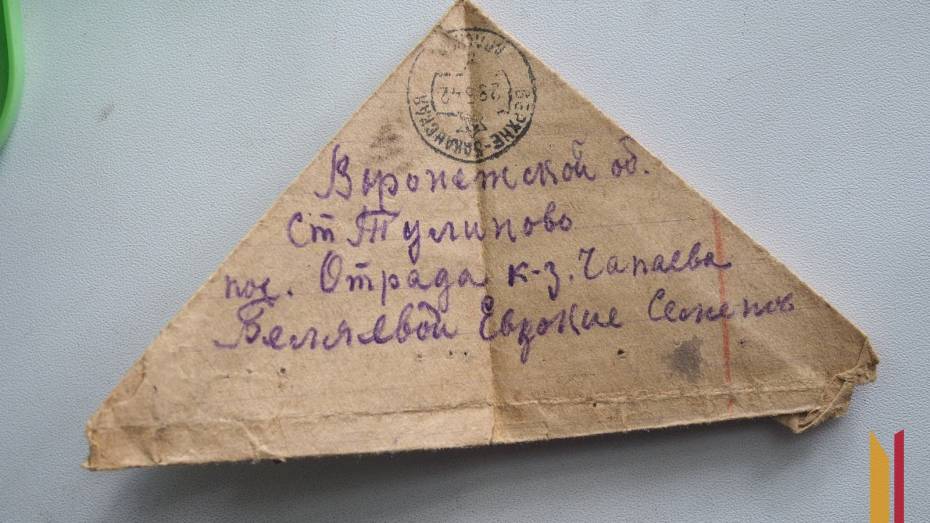 ВЕРХНЕ-БАКАНСКАЯ
Выронежской об.
Ст Тулиново
пос. Отрада к-з. Чапаева
Беляевой Евдокие Семенов